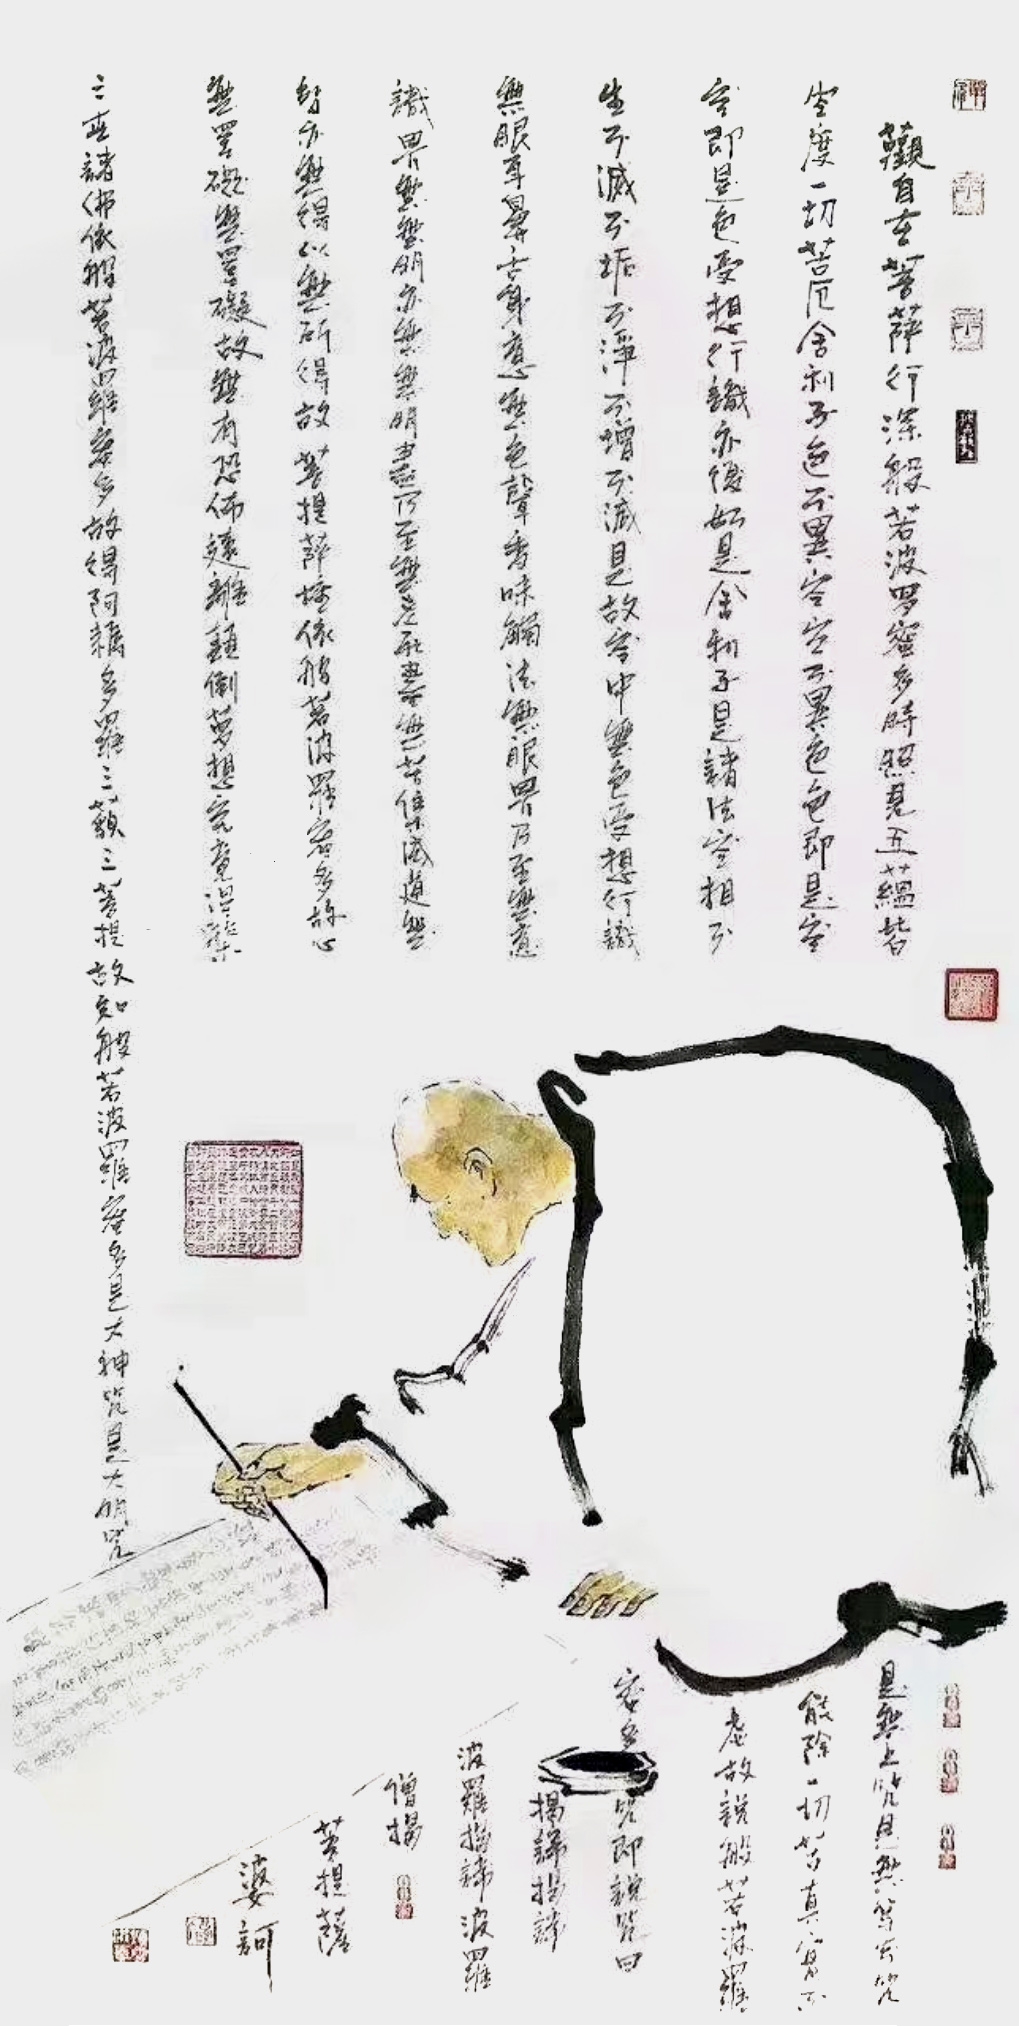 觀自在菩薩行深般若波罗蜜多時照見五蘊皆
空度一切苦厄舍利子色不異空空不異色色即是空
空即是色受想行識亦復如是舍利子是諸法空相不
生不滅不垢不淨不增不減是故空中無色受想行識
無眼耳鼻舌身意無色聲香味觸法無眼界乃至無意
識界無無明亦無無明盡乃至無老死盡無苦集滅道無
智亦無得以無所得故菩提薩埵依般若波羅蜜多故心
無罣礙無罣礙故無有恐怖遠離顛倒夢想究竟涅槃
三世諸佛依般若波羅蜜多故得阿耨多羅三藐三菩提故知般若波羅蜜多是大神咒是大明咒
是無上咒是無等等咒
能除一切苦真實不
虛故說般若波羅
蜜多咒即說咒曰
揭諦揭諦
波羅揭諦波羅
僧揭
菩提薩
婆訶